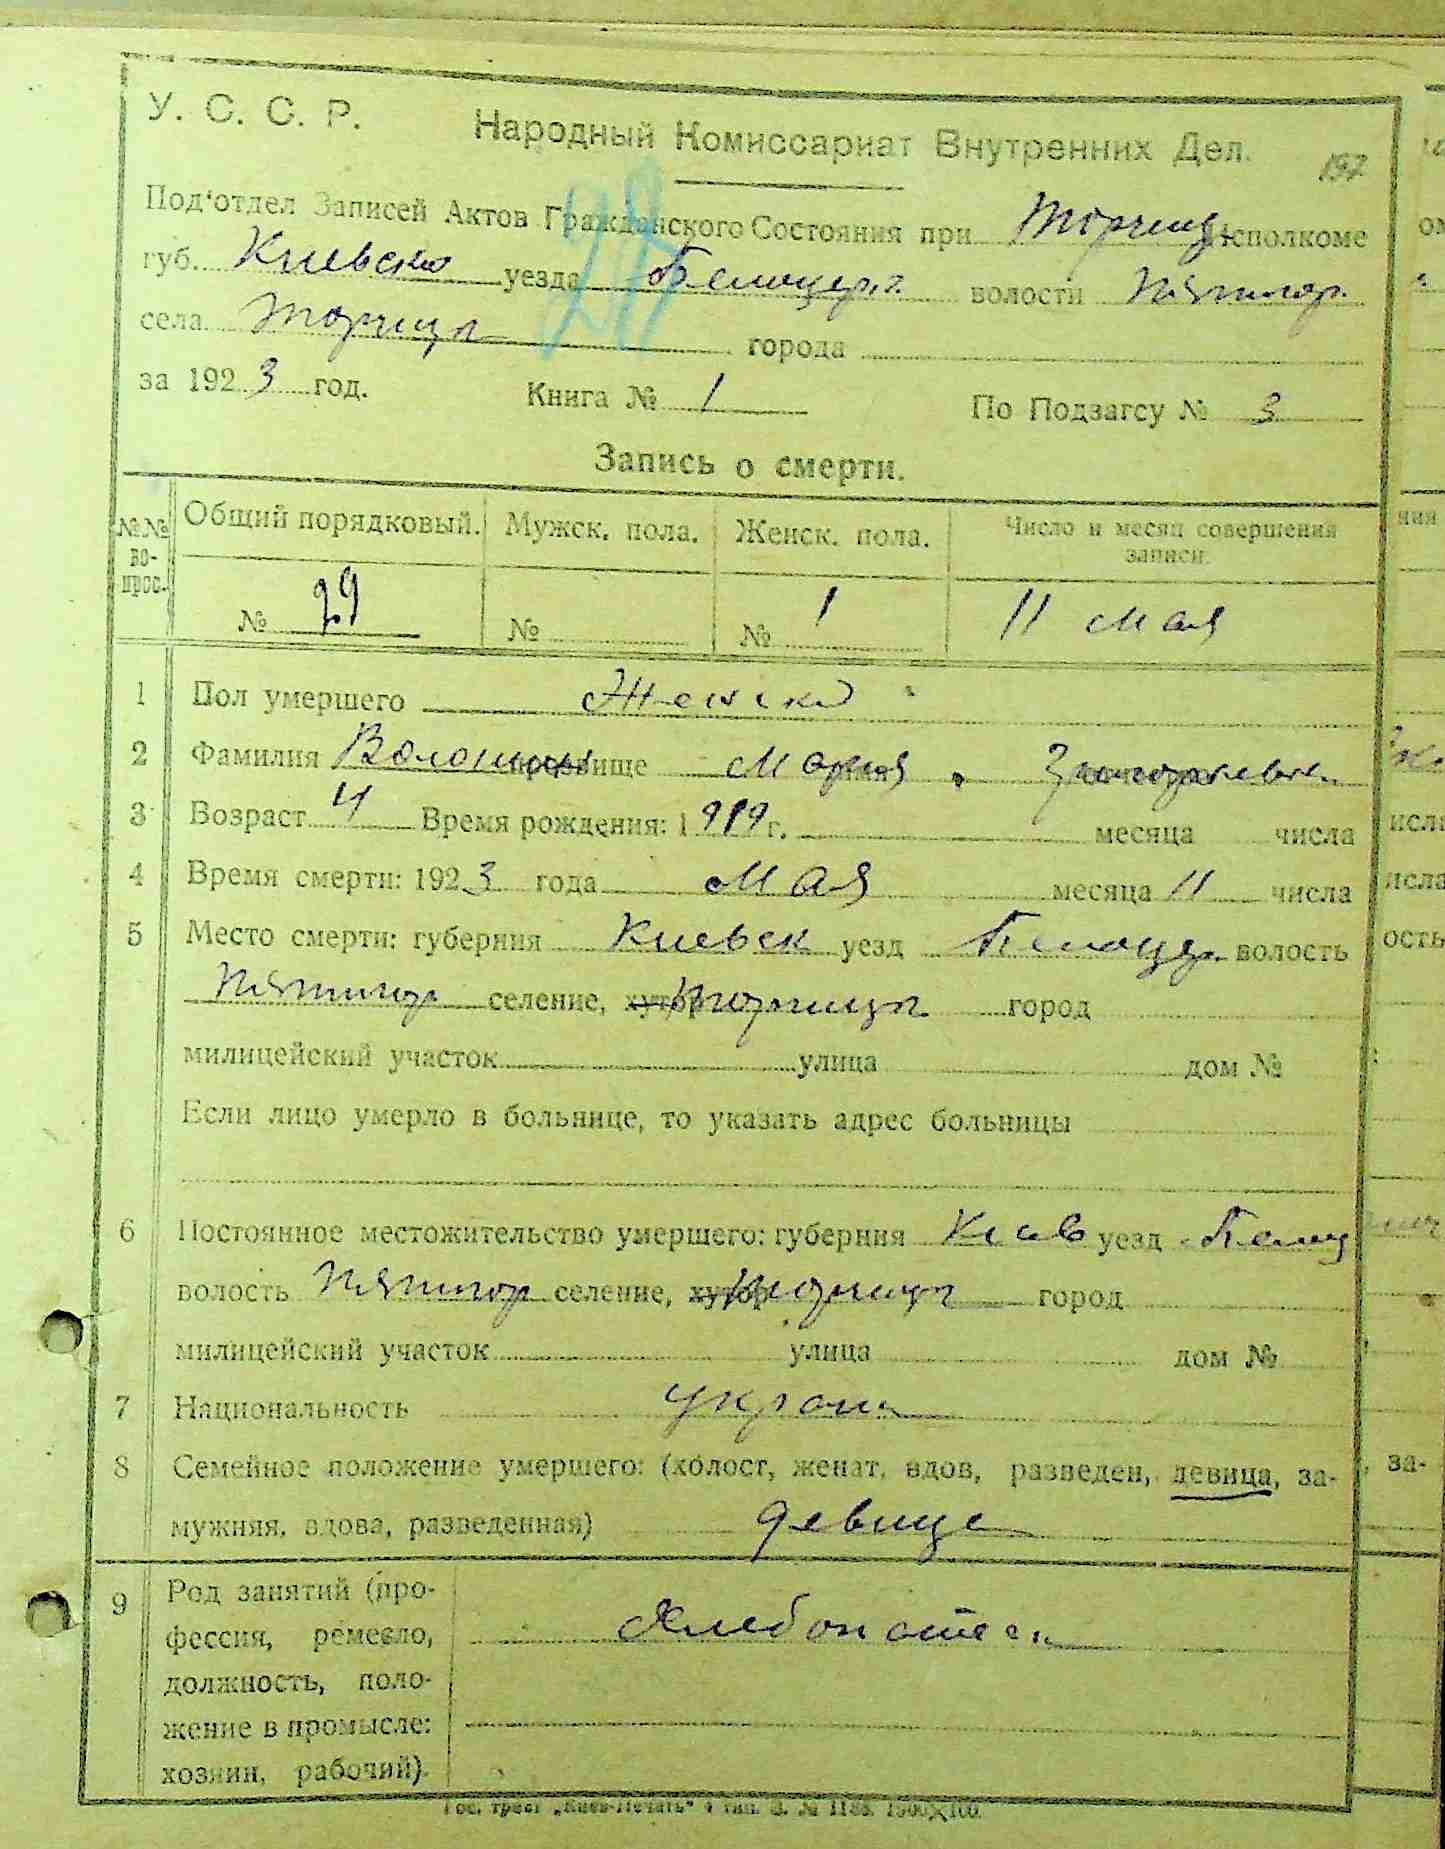 У. С. С. Р. Народный Комиссариат Внутренних Дел. 197
Под‘отдел Записей Актов Гражданского Состояния при Торчиц. Исполкоме
губ. Киевско уезда Белоцер. волости Пятигор.
села Торчица города
за 1923 год. Книга № 1 По Подзагсу № 3
28
Запись о смерти.
№№ вопрос. Общий порядковый. Мужск. пола. Женск. пола. Число и месяц совершения записи.
№ 29 № № 1 11 мая
1 Пол умершего Женско
2 Фамилия прозвище Мария
3 Возраст 4 Время рождения: 1919 г. месяца числа
4 Время смерти: 1923 года мая месяца 11 числа
5 Место смерти: губерния Киевск уезд Белоцер. волость
Пятигор селение, хутор Торчица город
милицейский участок улица дом №
Если лицо умерло в больнице, то указать адрес больницы
6 Постоянное местожительство умершего: губерния Киев уезд Белоц
волость Пятигор селение, хутор Торчица город
милицейский участок улица дом №
7 Национальность украин
8 Семейное положение умершего: (холост, женат, вдов, разведен, девица, за-
мужняя, вдова, разведенная) девица
9 Род занятий (про-
фессия, ремесло, Хлебопашен.
должность, поло-
жение в промысле:
хозяин, рабочий).
Гос. трест „Киев-Печать“